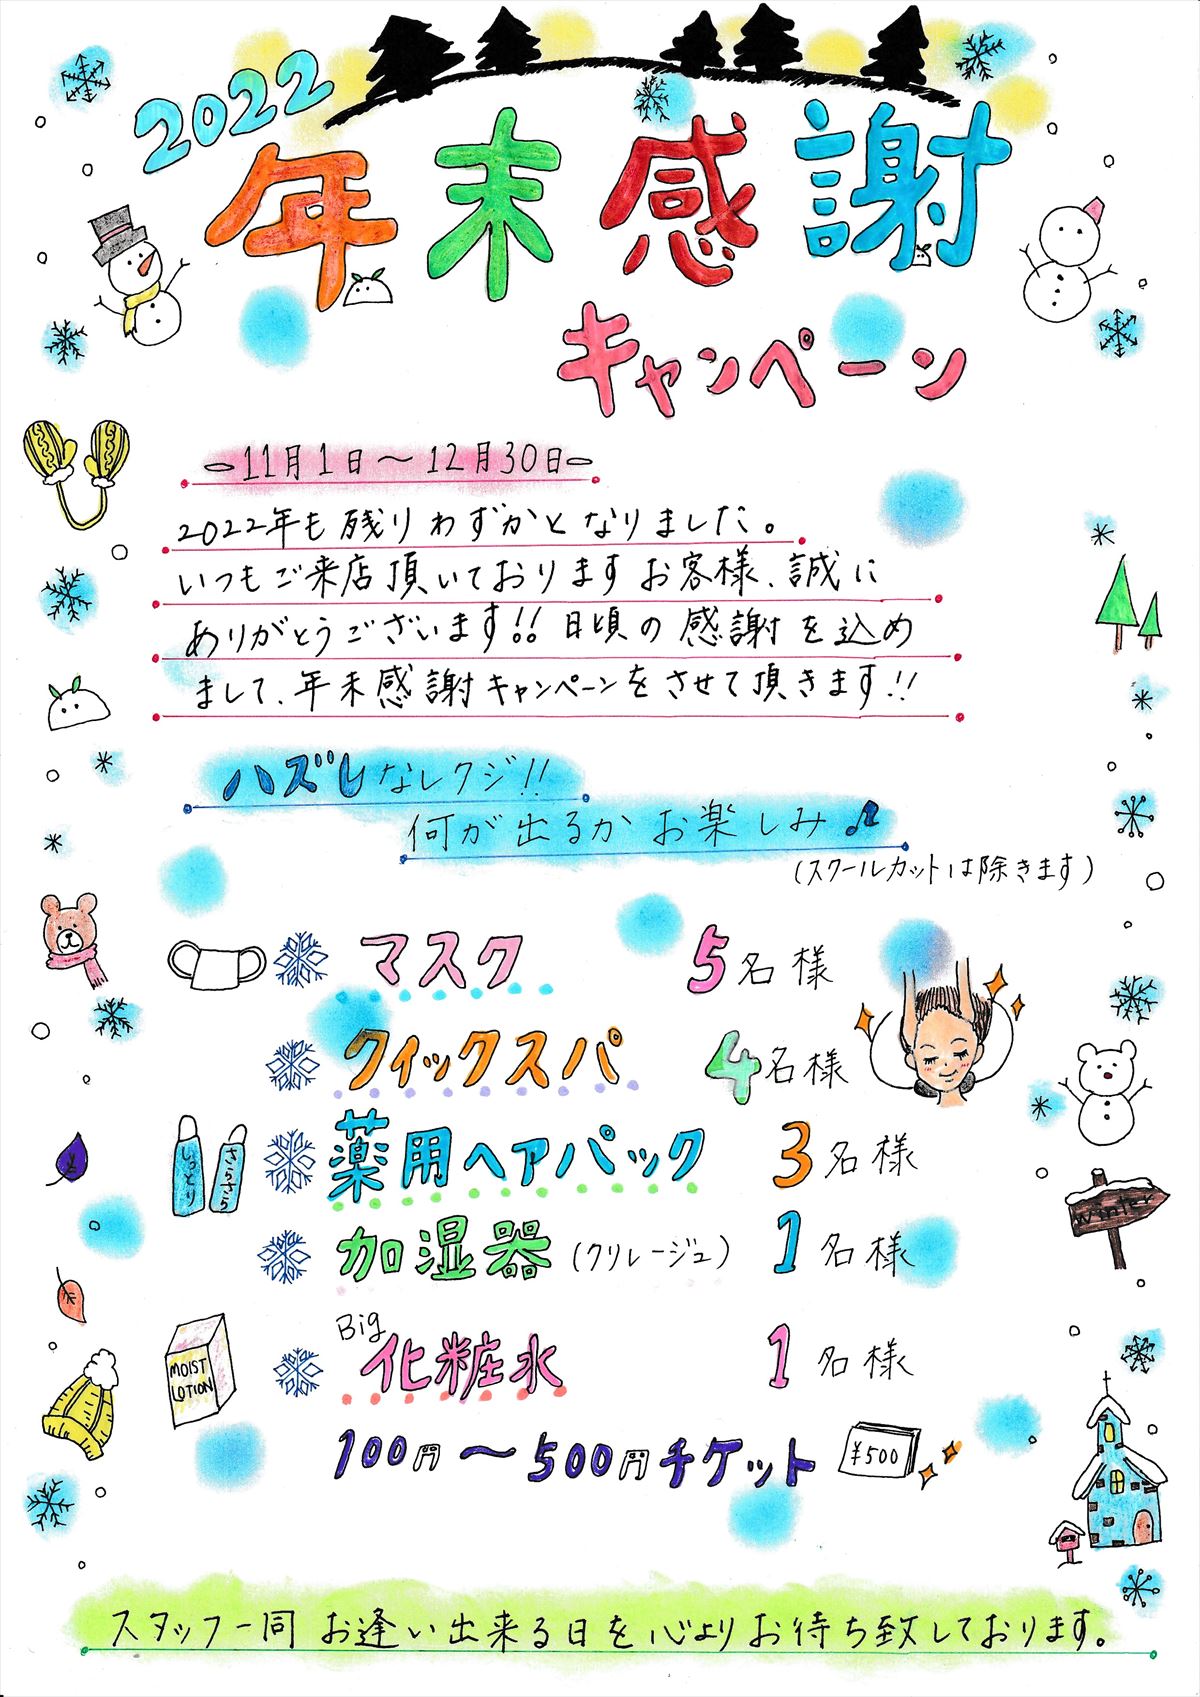 2022
年末感謝
キャンペーン
11月1日～12月30日
2022年も残りわずかとなりました。
いつもご来店頂いておりますお客様、誠に
ありがとうございます!! 日頃の感謝を込め
まして、年末感謝キャンペーンをさせて頂きます!!
ハズレなしクジ!!
何が出るかお楽しみ♪
(スクールカットは除きます)
マスク 5名様
クイックスパ 4名様
しっとり さらさら 薬用ヘアパック 3名様
winter
加湿器 (クリレージュ) 1名様
MOIST LOTION
Big 化粧水 1名様
100円～500円チケット ¥500
スタッフ一同 お逢い出来る日を心よりお待ち致しております。